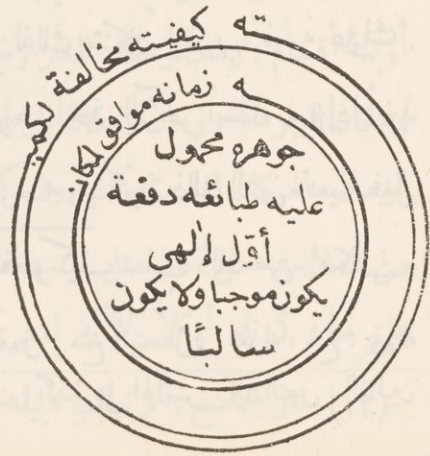 كيفيته مخالفة لكميته
زمانه موافق لمكانه
جوهره محمول
عليه طبائعه دفعة
أول إلهي
يكون موجبا ولا يكون
سالبًا